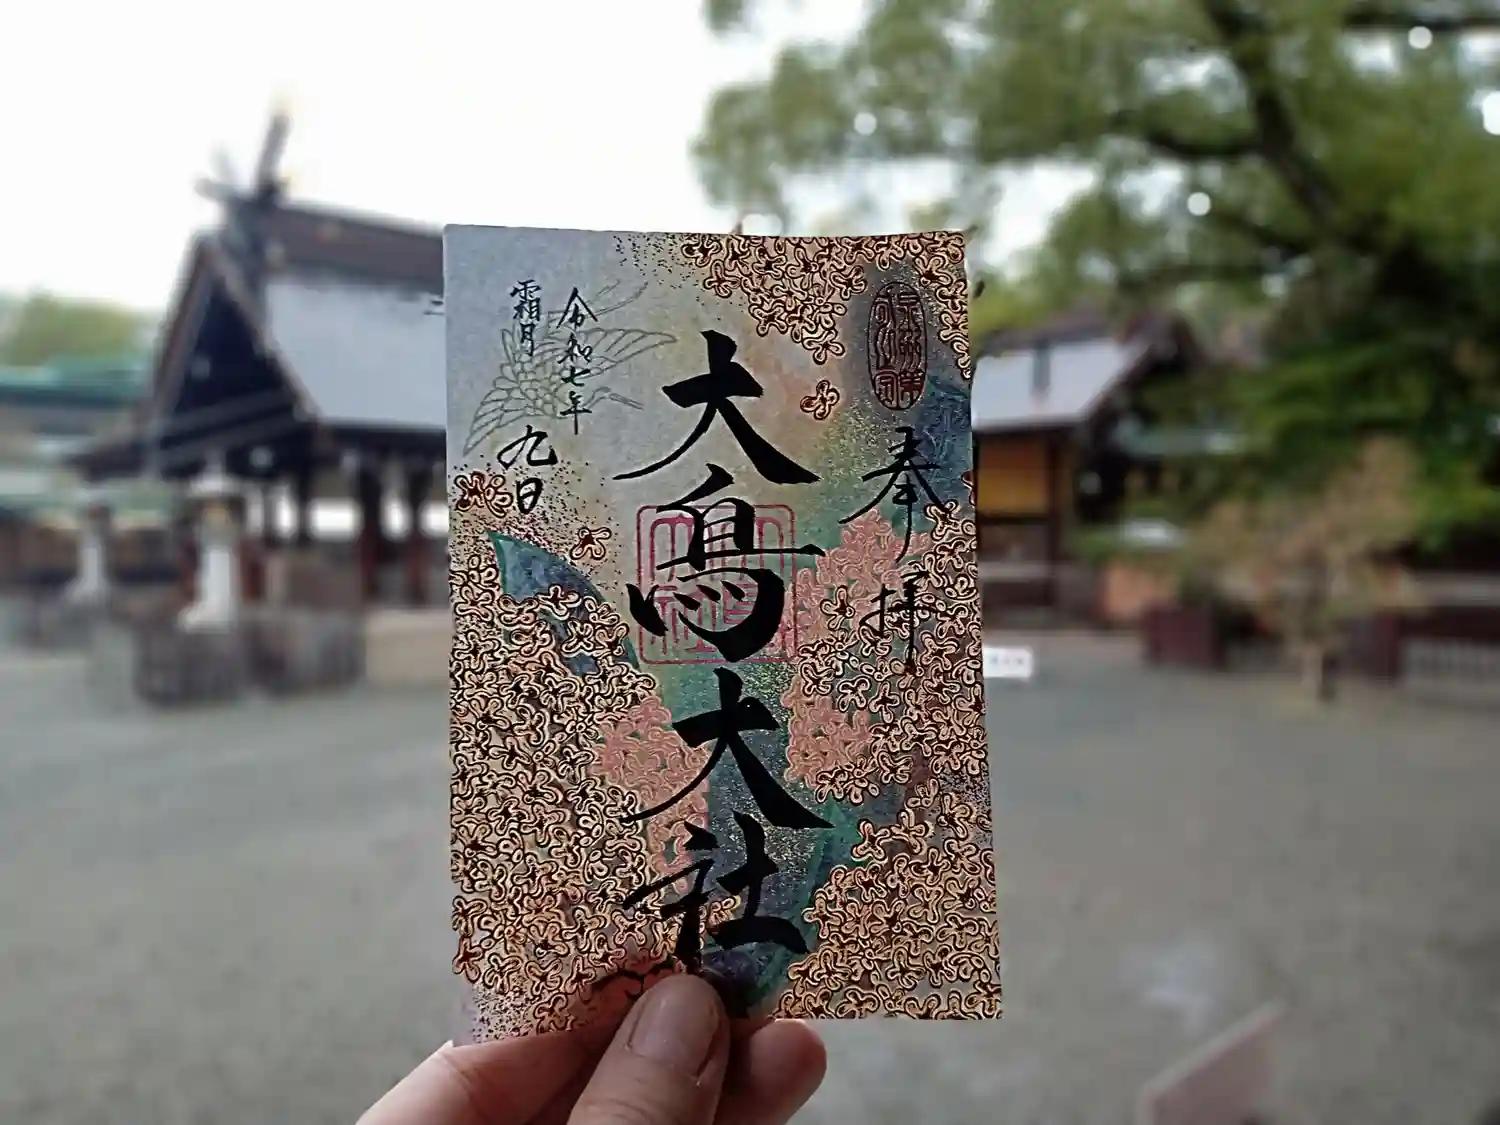 奉拝
大鳥大社
令和七年
霜月
九日